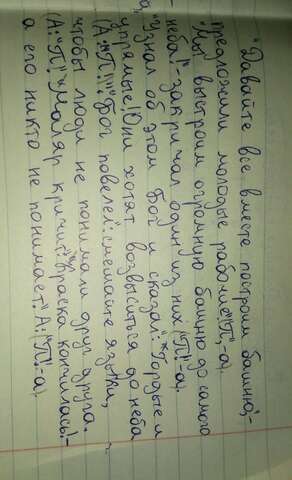 "Давайте все вместе построим башню,"-
предложили молодые рабочие ("П",-а).
"Мы выстроим огромную башню до самого
неба!"-закричал один из них. ("П!"-а)
Узнал об этом Бог и сказал: "Гордые и
упрямые! Они хотят возвыситься до неба
(А: "П!"). Бог повелел: смешайте языки,
чтобы люди не понимали друг друга.
(А: "П!" Маляр кричит: "Краска кончилась!"-
а его никто не понимает." А: ("П!"-а)